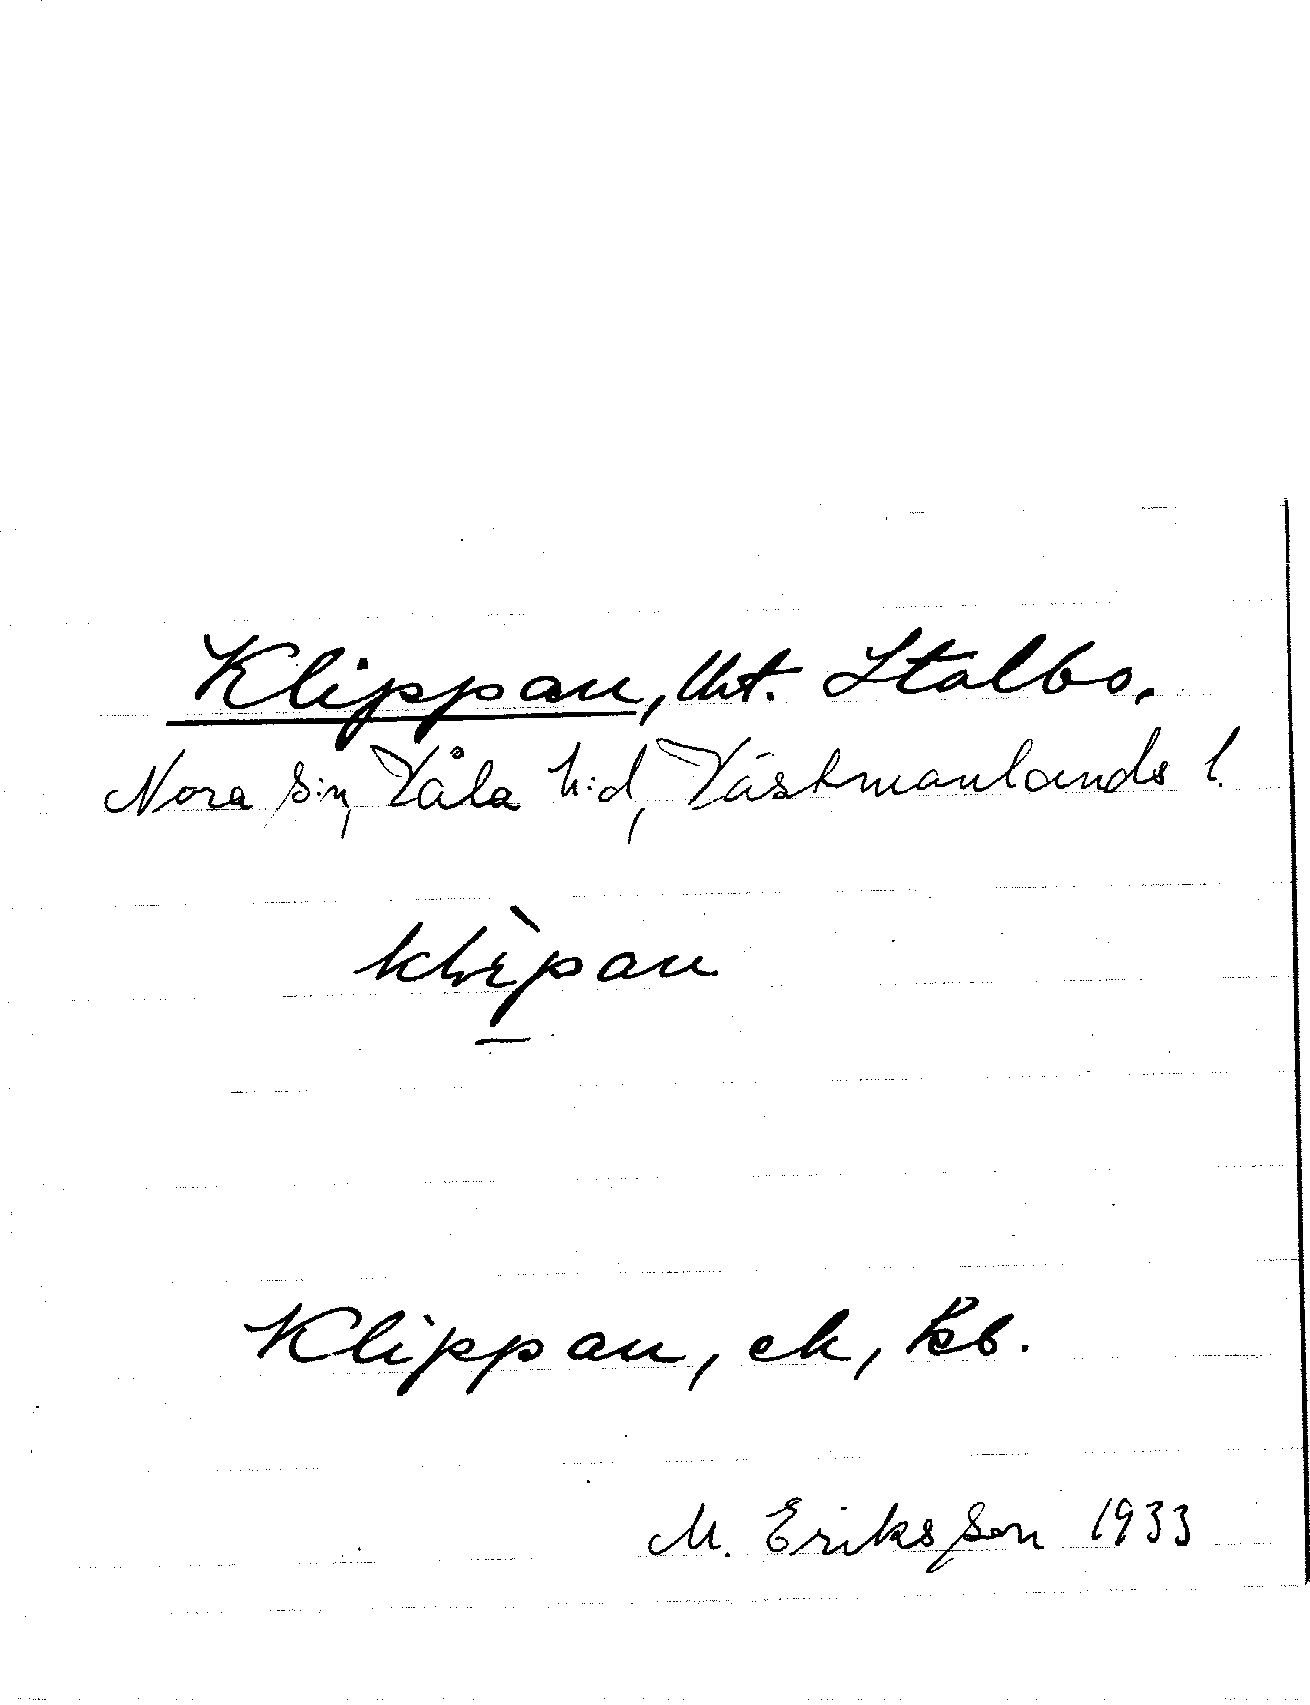 Klippan, lht. Stalbo.
Nora s:n, Våla h:d, Västmanlands l.
klìpan
Klippan, ek, Kb.
M. Eriksson 1933